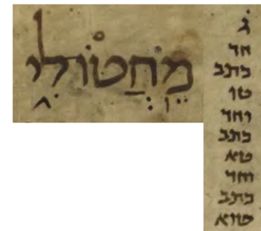 מֵחֲטוֹלִ֑י
ג֗
חד
כתב
טו
וחד
כתב
טא
וחד
כתב
טוא